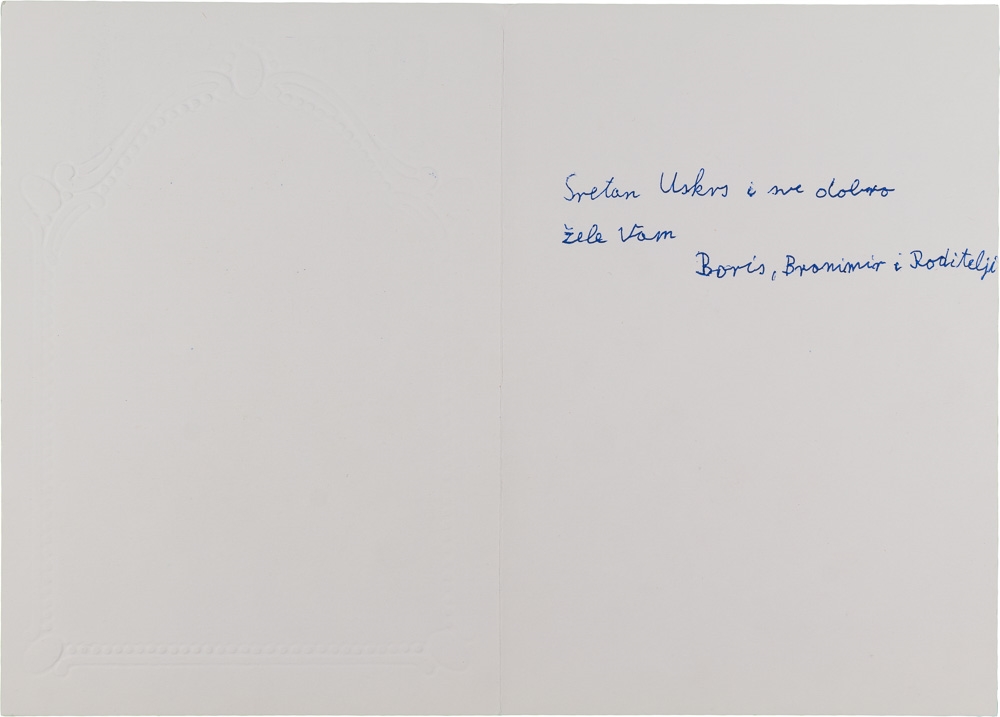 Sretan Uskrs i sve dobro
žele Vam
Boris, Branimir i Roditelji